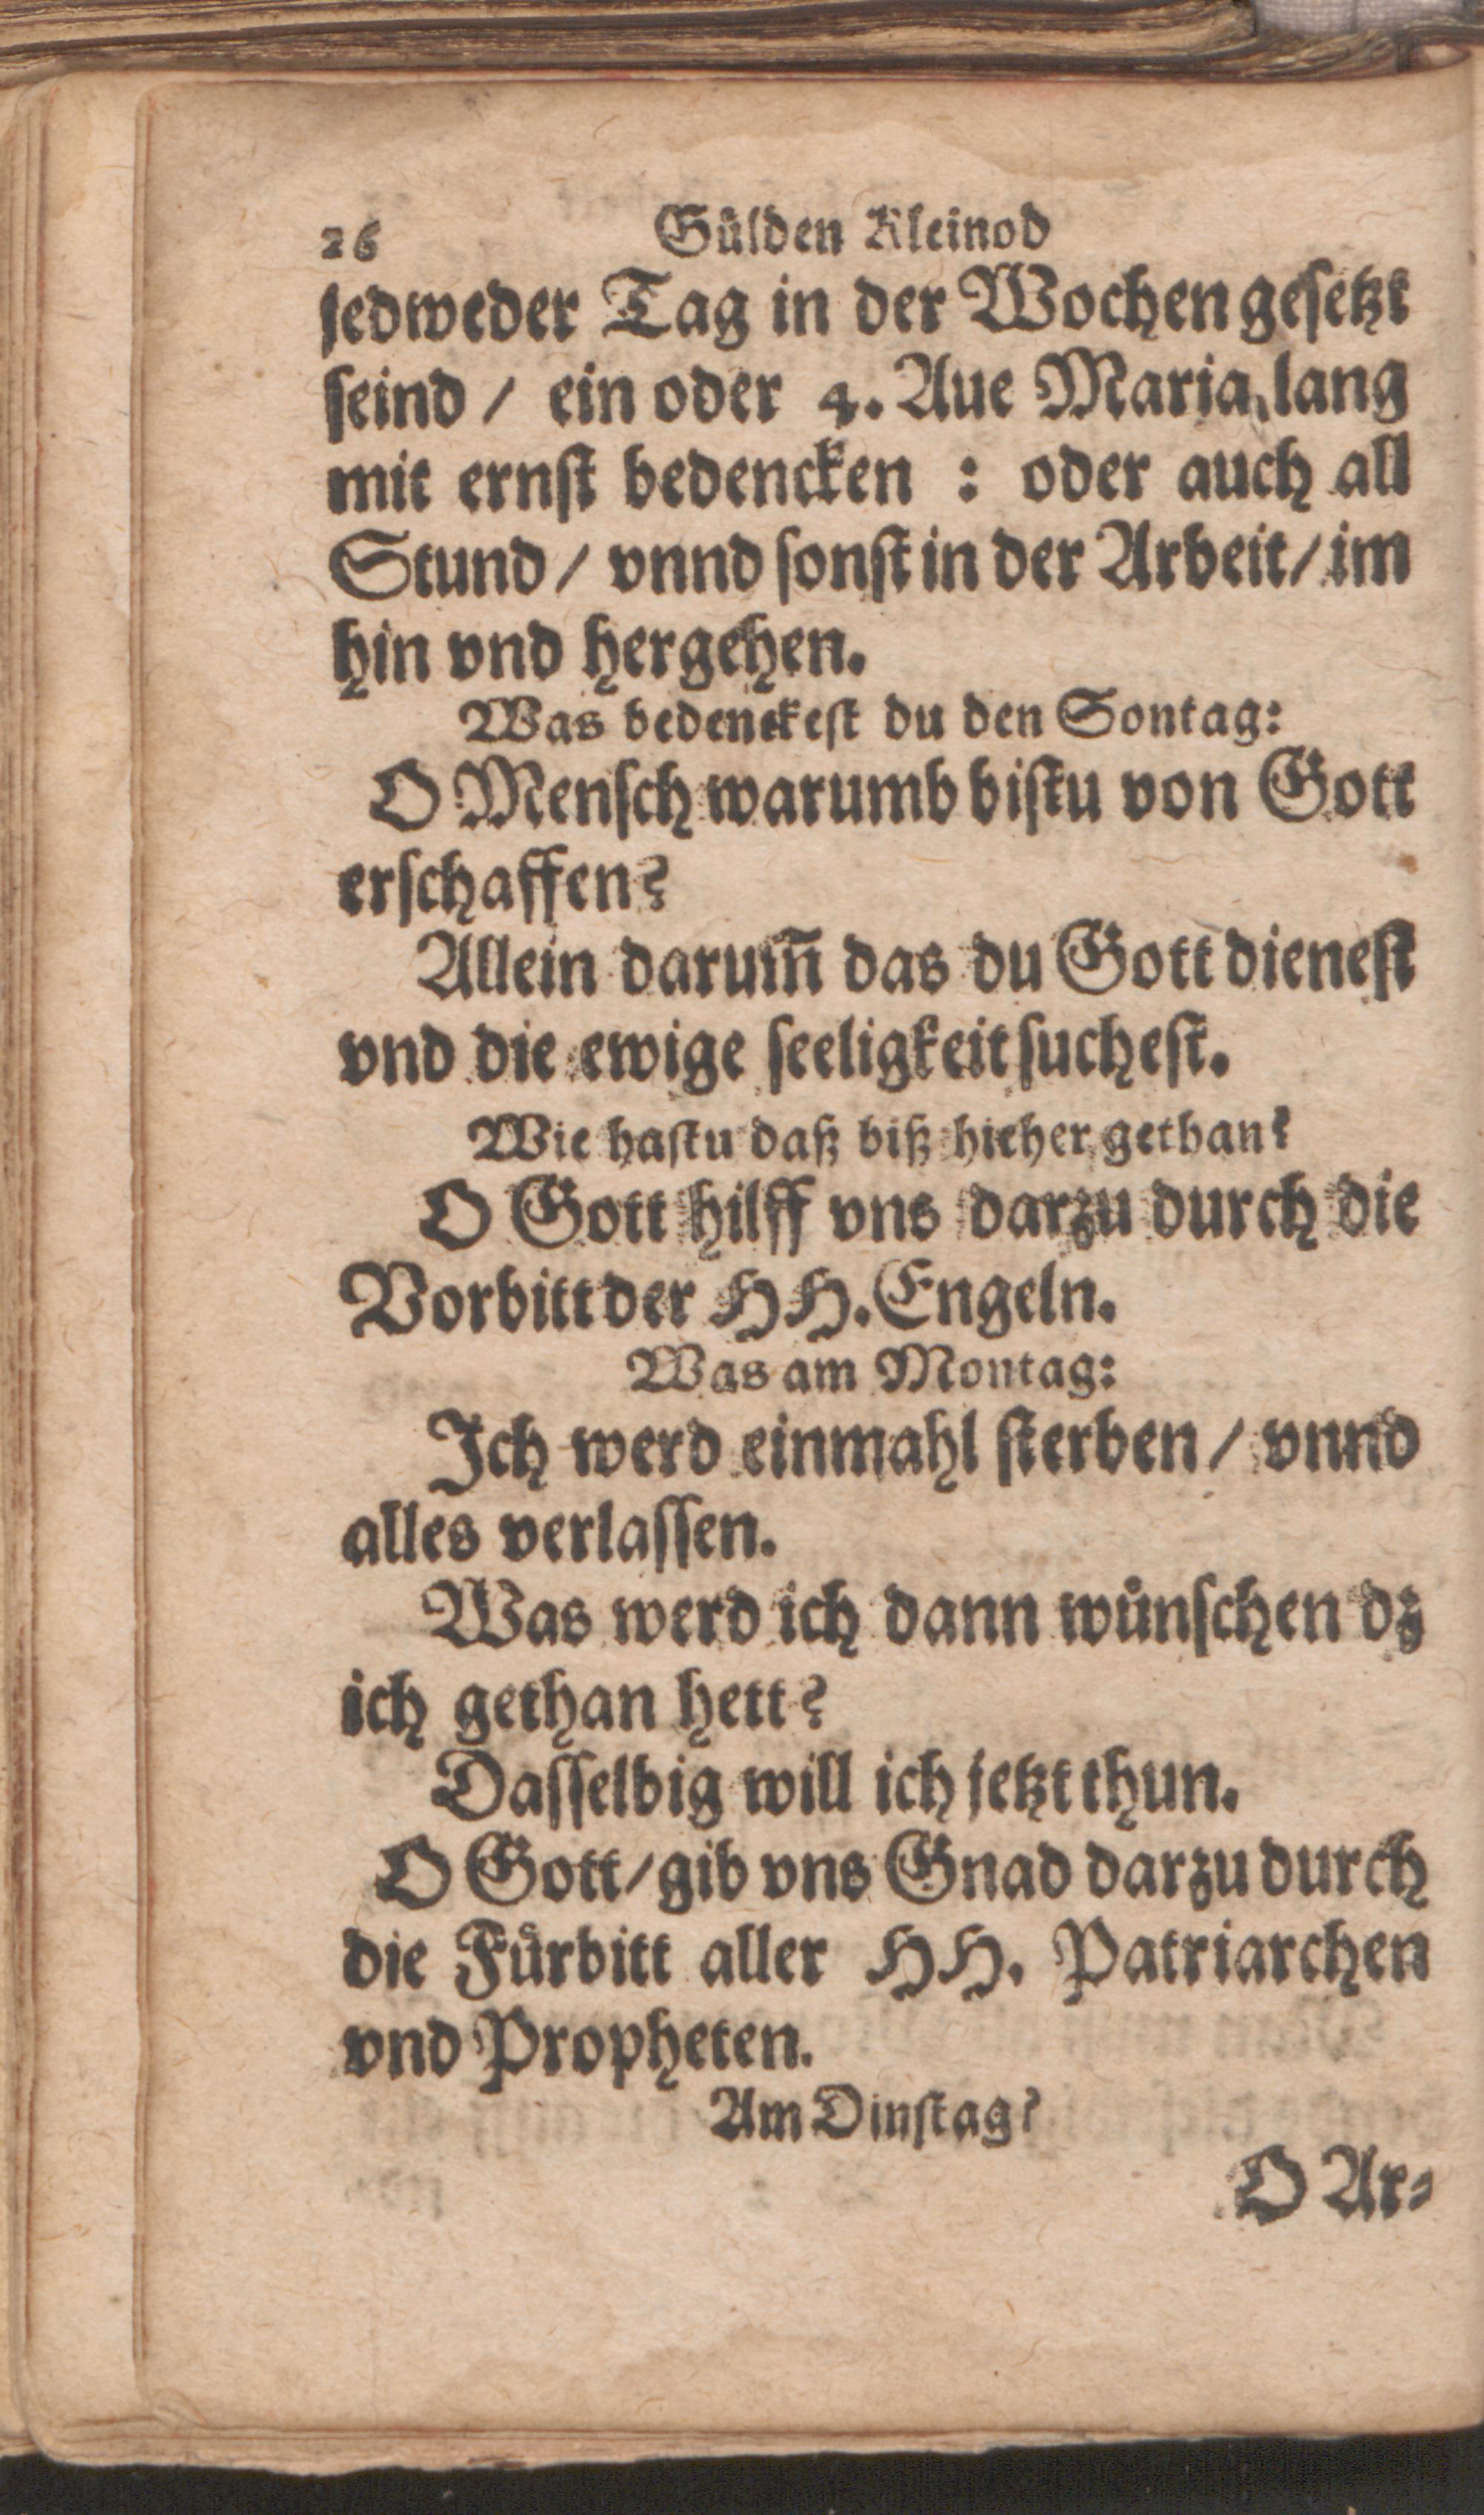 26 Gülden Kleinod
jedweder Tag in der Wochen gesetzt
seind / ein oder 4. Aue Maria lang
mit ernst bedencken : oder auch all
Stund / vnnd sonst in der Arbeit / im
hin vnd hergehen.
Was bedenckest du den Sontag:
O Mensch warumb bistu von Gott
erschaffen?
Allein darum̃ das du Gott dienest
vnd die ewige seeligkeit suchest.
Wie hastu daß biß hieher gethan?
O Gott hilff vns darzu durch die
Vorbitt der HH. Engeln.
Was am Montag:
Ich werd einmahl sterben / vnnd
alles verlassen.
Was werd ich dann wůnschen dz
ich gethan hett?
Dasselbig will ich jetzt thun.
O Gott / gib vns Gnad darzu durch
die Fůrbitt aller HH. Patriarchen
vnd Propheten.
Am Dinstag?
O Ar-